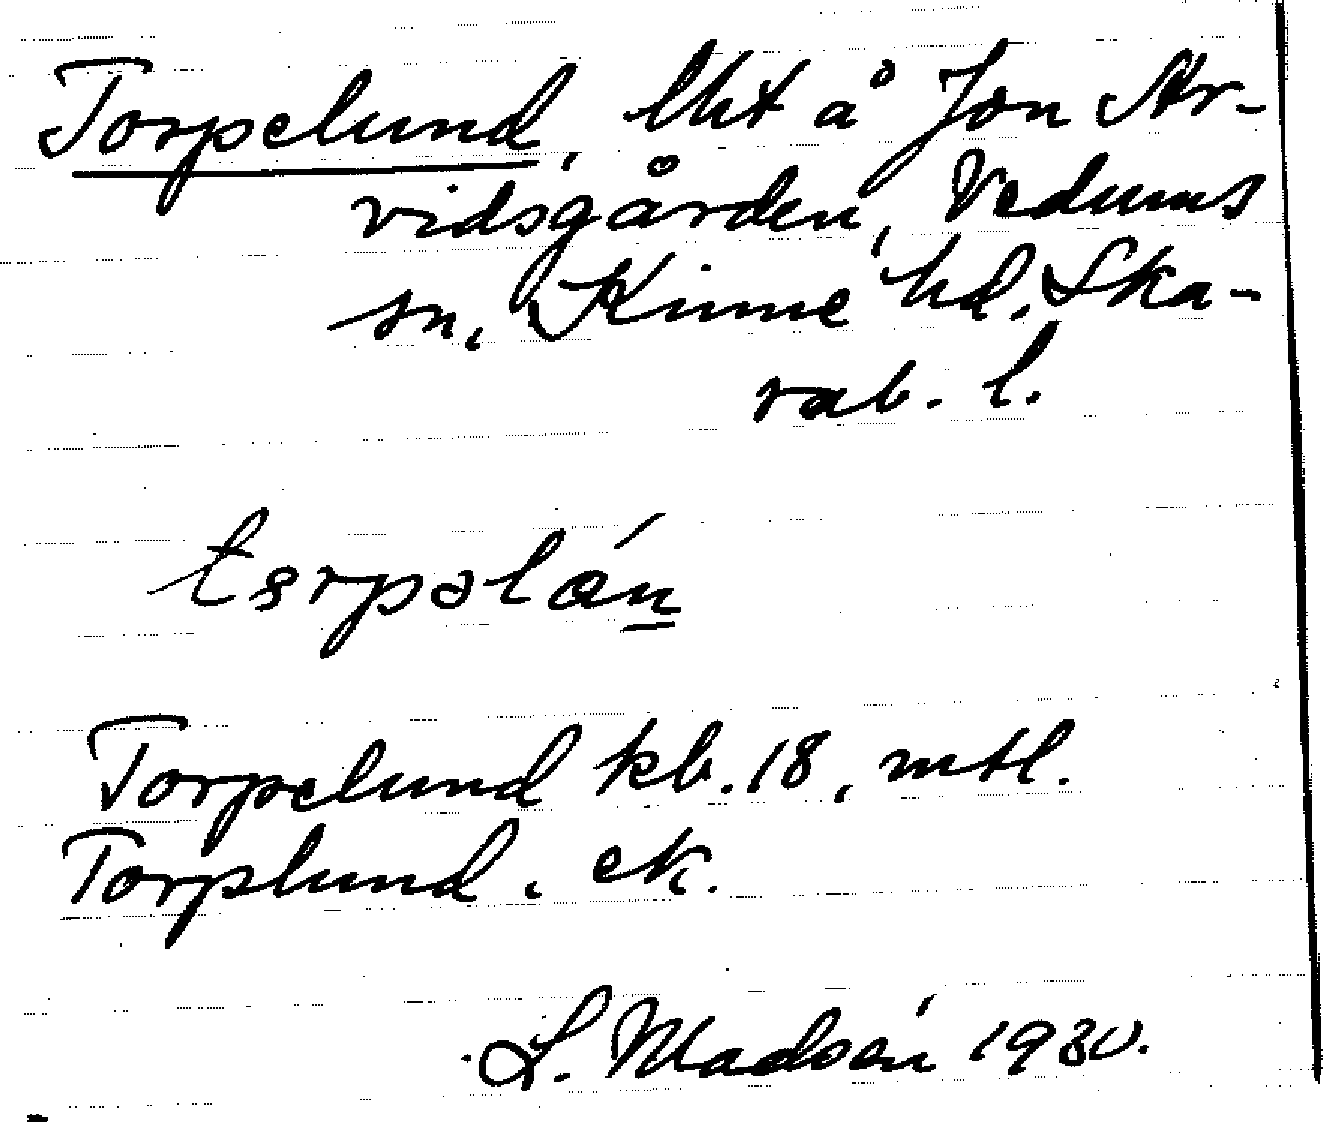 Torpelund, lht å Jon Ar-
vidsgården, Vedums
sn, Kinne hd. Ska-
rab. l.
Torpelund kb. 18, mtl.
Torplund. ek.
L. Madsén 1930.